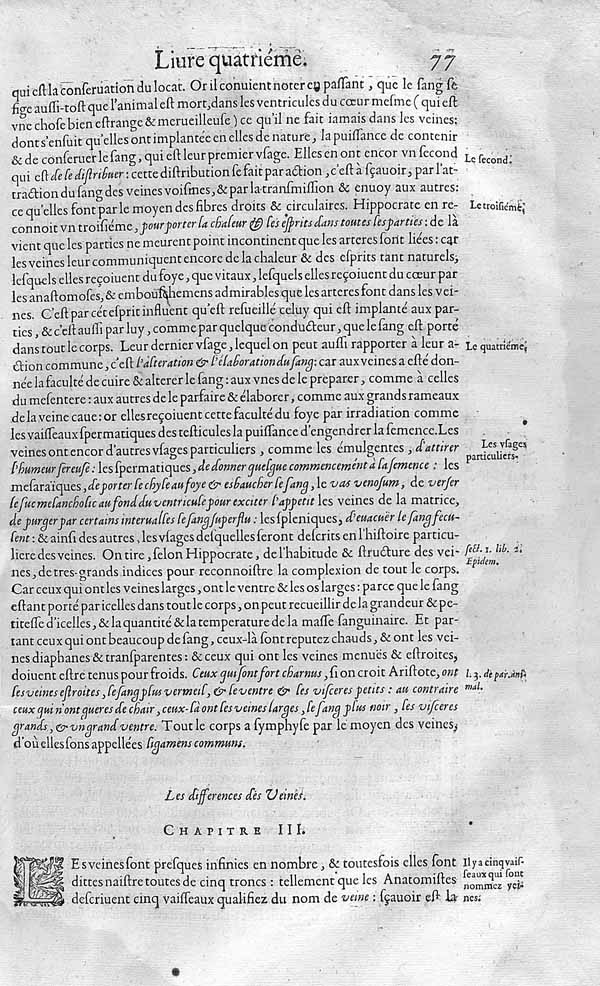 Liure quatriéme. 77
qui eſt la conſeruation du locat. Or il conuient noter en paſſant, que le ſang ſe
fige auſſi-toſt que l'animal eſt mort, dans les ventricules du cœur meſme (qui eſt
vne choſe bien eſtrange & merueilleuſe) ce qu'il ne fait iamais dans les veines:
dont s'enſuit qu'elles ont implantée en elles de nature, la puiſſance de contenir
& de conſeruer le ſang, qui eſt leur premier vſage. Elles en ont encor vn ſecond
Le ſecond.
qui eſt de le diſtribuer: cette diſtribution ſe fait par action, c'eſt à ſçauoir, par l'at-
traction du ſang des veines voiſines, & par la tranſmiſſion & enuoy aux autres:
ce qu'elles font par le moyen des fibres droits & circulaires. Hippocrate en re-
Le troiſiéme,
connoit vn troiſiéme, pour porter la chaleur & les eſprits dans toutes les parties: de là
vient que les parties ne meurent point incontinent que les arteres ſont liées: car
les veines leur communiquent encore de la chaleur & des eſprits tant naturels,
leſquels elles reçoiuent du foye, que vitaux, leſquels elles reçoiuent du cœur par
les anaſtomoſes, & embouſchemens admirables que les arteres font dans les vei-
nes. C'eſt par cét eſprit influent qu'eſt reſueillé celuy qui eſt implanté aux par-
ties, & c'eſt auſſi par luy, comme par quelque conducteur, que le ſang eſt porté
dans tout le corps. Leur dernier vſage, lequel on peut auſſi rapporter à leur a-
Le quatriéme,
ction commune, c'eſt l'alteration & l'élaboration du ſang: car aux veines a eſté don-
née la faculté de cuire & alterer le ſang: aux vnes de le preparer, comme à celles
du meſentere: aux autres de le parfaire & élaborer, comme aux grands rameaux
de la veine caue: or elles reçoiuent cette faculté du foye par irradiation comme
les vaiſſeaux ſpermatiques des teſticules la puiſſance d'engendrer la ſemence. Les
veines ont encor d'autres vſages particuliers, comme les émulgentes, d'attirer
Les vſages
particuliers.
l'humeur ſereuſe: les ſpermatiques, de donner quelque commencement à la ſemence: les
meſaraïques, de porter le chyle au foye & esbaucher le ſang, le vas venoſum, de verſer
le ſuc melancholic au fond du ventricule pour exciter l'appetit les veines de la matrice,
de purger par certains interualles le ſang ſuperflu: les ſpleniques, d'euacuër le ſang fecu-
lent: & ainſi des autres, les vſages deſquelles ſeront deſcrits en l'hiſtoire particu-
liere des veines. On tire, ſelon Hippocrate, de l'habitude & ſtructure des vei-
ſect. 1. lib. 2.
Epidem.
nes, de tres-grands indices pour reconnoiſtre la complexion de tout le corps.
Car ceux qui ont les veines larges, ont le ventre & les os larges: parce que le ſang
eſtant porté par icelles dans tout le corps, on peut recueillir de la grandeur & pe-
titeſſe d'icelles, & la quantité & la temperature de la maſſe ſanguinaire. Et par-
tant ceux qui ont beaucoup de ſang, ceux-là ſont reputez chauds, & ont les vei-
nes diaphanes & tranſparentes: & ceux qui ont les veines menuës & eſtroites,
doiuent eſtre tenus pour froids. Ceux qui ſont fort charnus, ſi on croit Ariſtote, ont
l. 3. de par. ani-
mal.
les veines eſtroites, le ſang plus vermeil, & le ventre & les viſceres petits: au contraire
ceux qui n'ont gueres de chair, ceux-là ont les veines larges, le ſang plus noir, les viſceres
grands, & vn grand ventre. Tout le corps a ſymphyſe par le moyen des veines,
d'où elles ſons appellées ligamens communs.
Les differences des Veines.
CHAPITRE III.
LEs veines ſont preſques infinies en nombre, & toutesfois elles ſont
dittes naiſtre toutes de cinq troncs: tellement que les Anatomiſtes
deſcriuent cinq vaiſſeaux qualifiez du nom de veine: ſçauoir eſt la
Il y a cinq vaiſ-
ſeaux qui ſont
nommez vei-
nes.